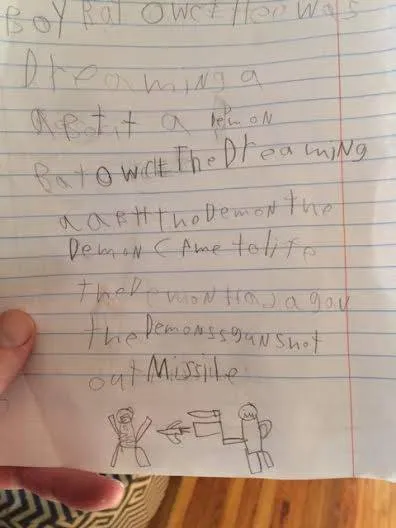 Boy Bat owct Hee was
Dreaming a
aBotit a Demon
Bat Owct The Dreaming
a aBHt the Demon the
Demon Came to life
the Demon Had a gon
the Demonss gun shot
out Missile